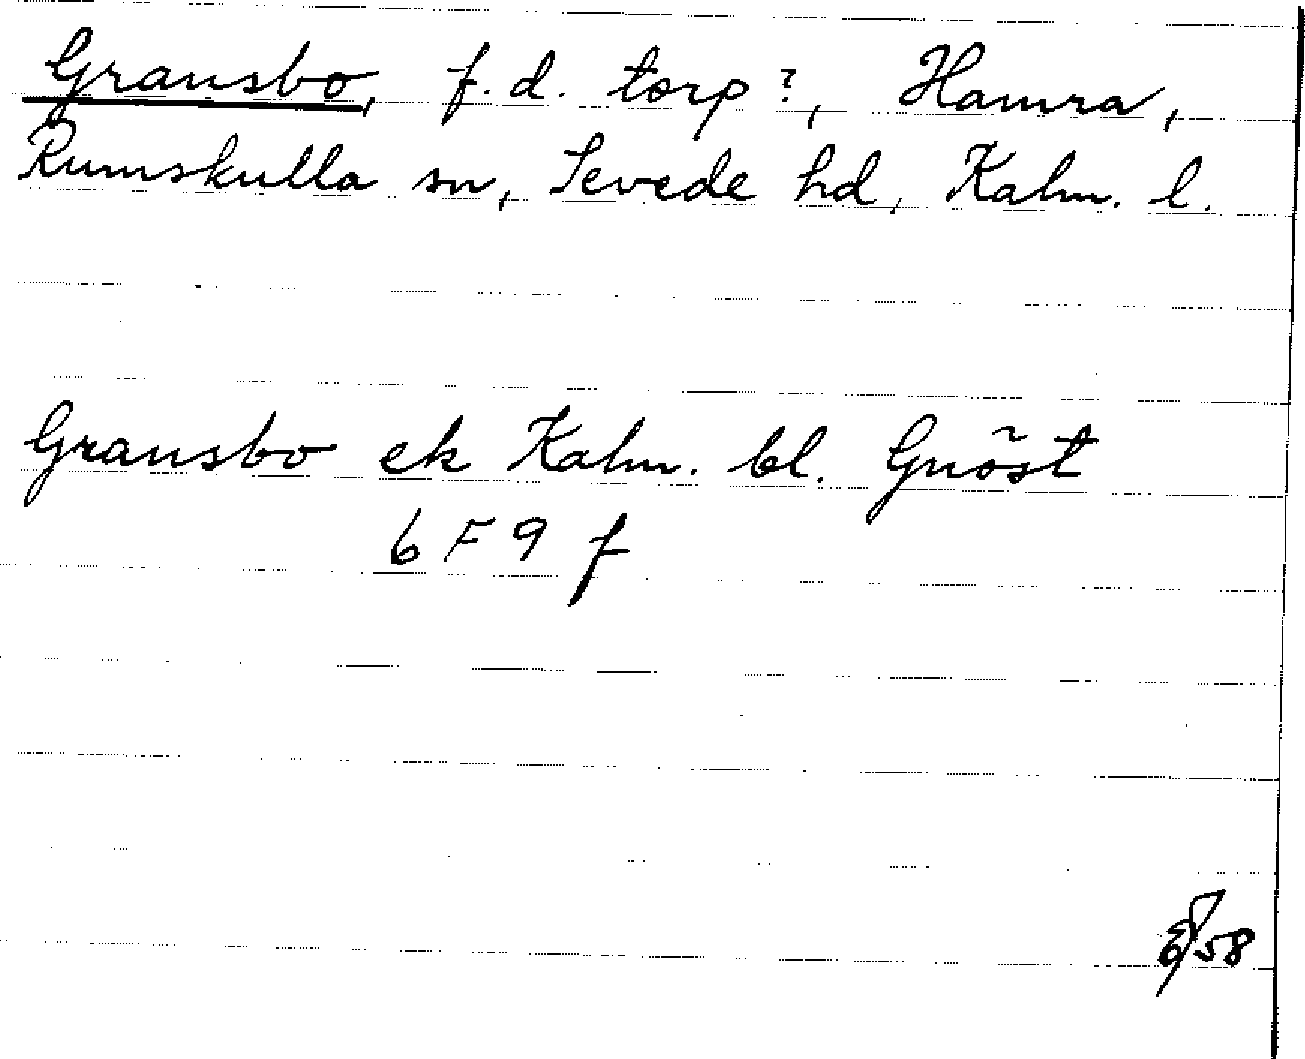 Gransbo, f.d. torp?, Hamra,
Rumskulla sn, Sevede hd, Kalm. l.
Gransbo ek Kalm. bl. Gnöst
6 F 9 f
58